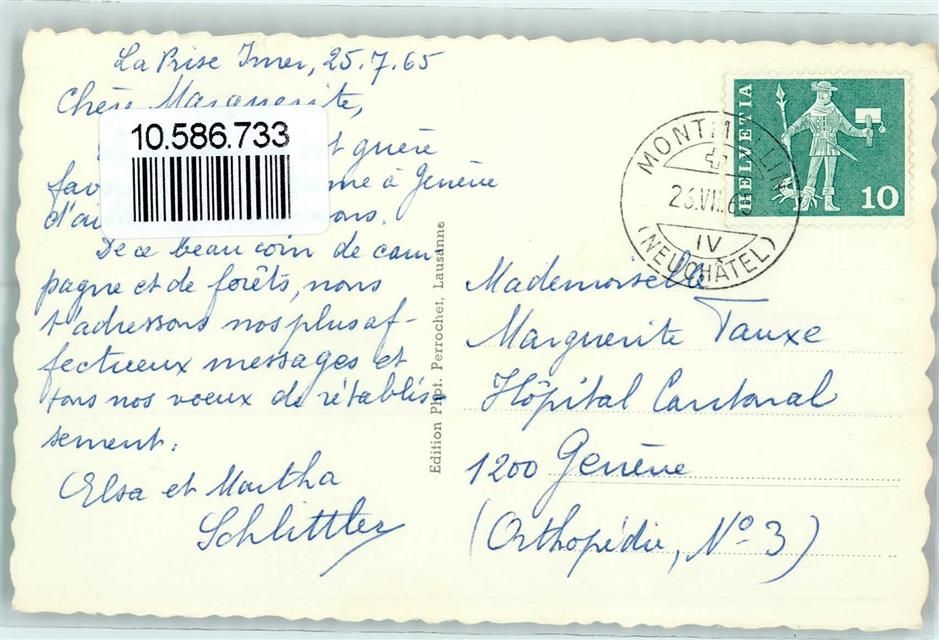 La Prise Imer, 25.7.65
Chère Marguerite,
10.586.733
guère
à Genève
De ce beau coin de cam-
pagne et de forêts, nous
t'adressons nos plus af-
fectueux messages et
tous nos voeux de rétablis-
sement.
Elsa et Martha
Schlittler
Edition Phot. Perrochet, Lausanne
HELVETIA
10
MONTM LLIN
26.VII.65
IV
(NEUCHÂTEL)
Mademoiselle
Marguerite Tauxe
Hôpital Cantonal
1200 Genève
(Orthopédie, No 3)